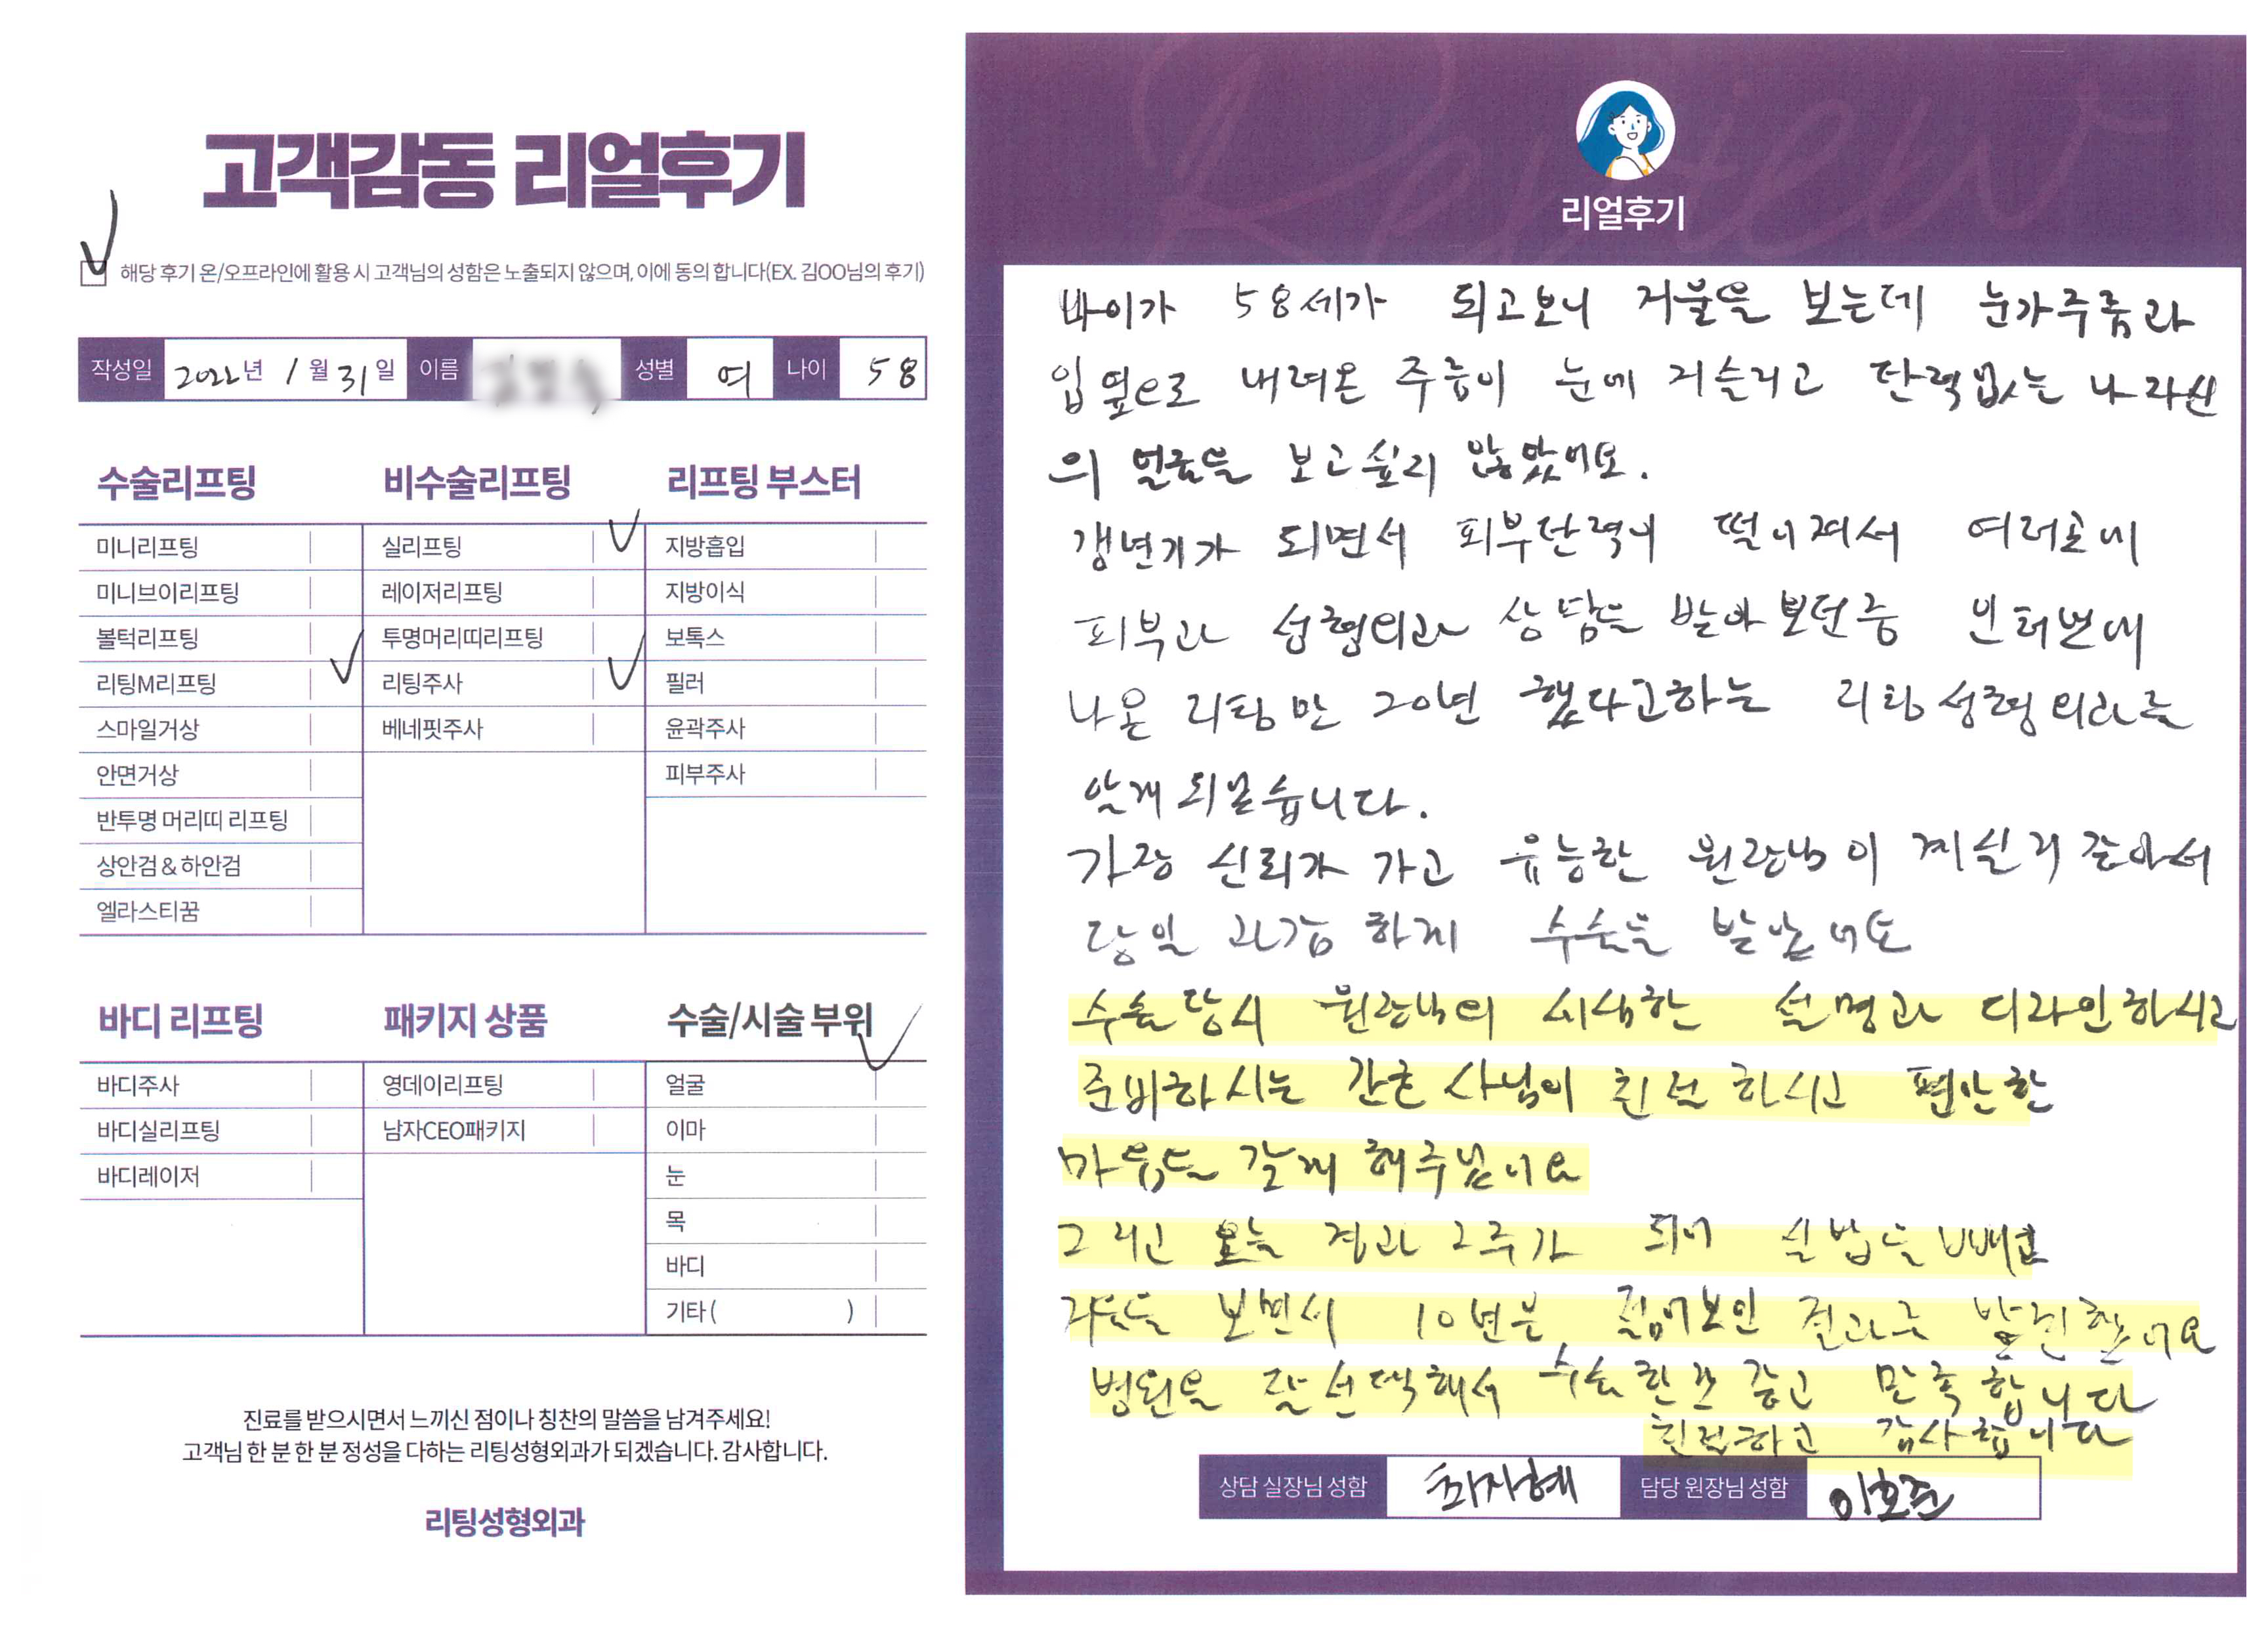 고객감동 리얼후기
해당 후기 온/오프라인에 활용 시 고객님의 성함은 노출되지 않으며, 이에 동의 합니다(EX. 김OO님의 후기)
작성일 2022년 1월 31일 이름 성별 여 나이 58
수술리프팅
미니리프팅
미니브이리프팅
볼턱리프팅
리팅M리프팅
스마일거상
안면거상
반투명 머리띠 리프팅
상안검&하안검
엘라스티꿈
비수술리프팅
실리프팅
레이저리프팅
투명머리띠리프팅
리팅주사
베네핏주사
리프팅 부스터
지방흡입
지방이식
보톡스
필러
윤곽주사
피부주사
바디 리프팅
바디주사
바디실리프팅
바디레이저
패키지 상품
영데이리프팅
남자CEO패키지
수술/시술 부위
얼굴
이마
눈
목
바디
기타( )
진료를 받으시면서 느끼신 점이나 칭찬의 말씀을 남겨주세요!
고객님 한 분 한 분 정성을 다하는 리팅성형외과가 되겠습니다. 감사합니다.
리팅성형외과
Review
리얼후기
나이가 58세가 되고보니 거울을 보는데 눈가주름과
입옆으로 내려온 주름이 눈에 거슬리고 탄력없는 나 자신
의 얼굴을 보고싶지 않았어요.
갱년기가 되면서 피부탄력이 떨어져서 여러곳에
피부과 성형외과 상담을 받아보던중 인터넷에
나온 리팅만 20년 했다고하는 리팅성형외과를
알게 되었습니다.
가장 신뢰가 가고 유능한 원장님이 계실거 같아서
당일 과감하게 수술을 받았어요
수술당시 원장님의 세심한 설명과 디자인하시고
준비하시는 간호사님이 친절하시고 편안한
마음을 갖게 해주셨어요
그리고 오늘 경과 2주가 되어 실밥을 빼고
거울을 보면서 10년은 젊어보인 결과를 발견했어요
병원을 잘 선택해서 수술한것 같고 만족합니다
친절하고 감사합니다
상담 실장님 성함 최자혜 담당 원장님 성함 이호준